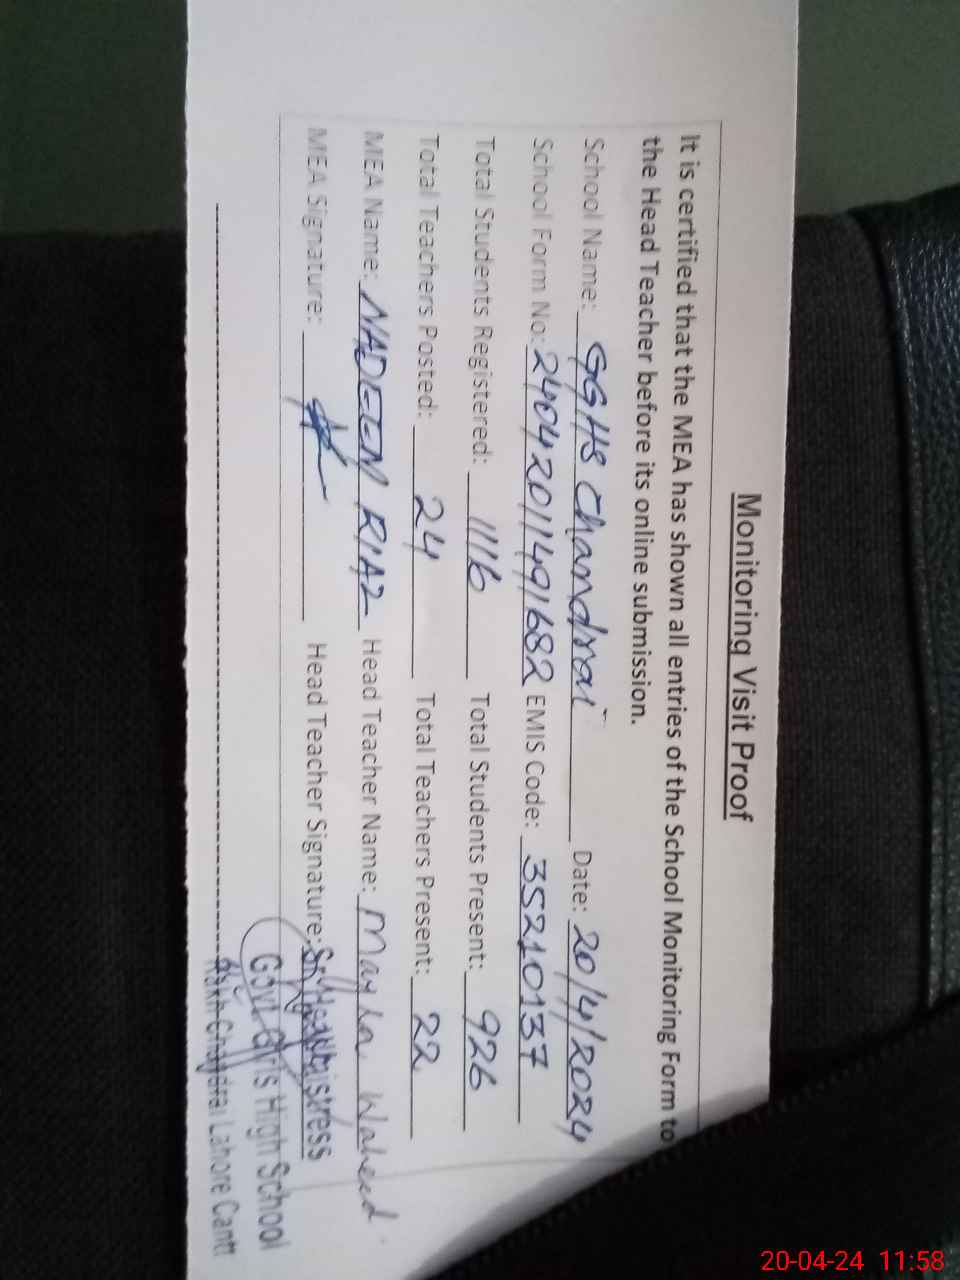 Monitoring Visit Proof
It is certified that the MEA has shown all entries of the School Monitoring Form to
the Head Teacher before its online submission.
School Name: GGHS Chandrai Date: 20/4/2024
School Form No: 24042011491682 EMIS Code: 35210137
Total Students Registered: 1116 Total Students Present: 926
Total Teachers Posted: 24 Total Teachers Present: 22
MEA Name: NADEEM RIAZ Head Teacher Name: Mayha Waheed
MEA Signature: Head Teacher Signature:
Sr. Headmistress
Govt. Girls High School
Rakh Chandrai Lahore Cantt
20-04-24 11:58